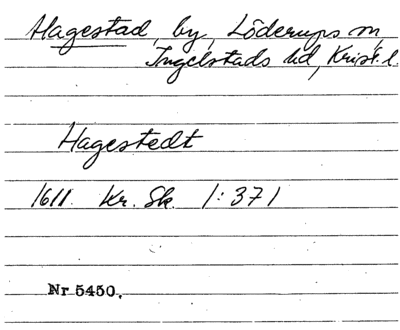 Hagestad, by, Löderups sn,
Ingelstads hd, Krist. l.
Hagestedt
1611. Kr. Sk. 1:371
Nr 5450.